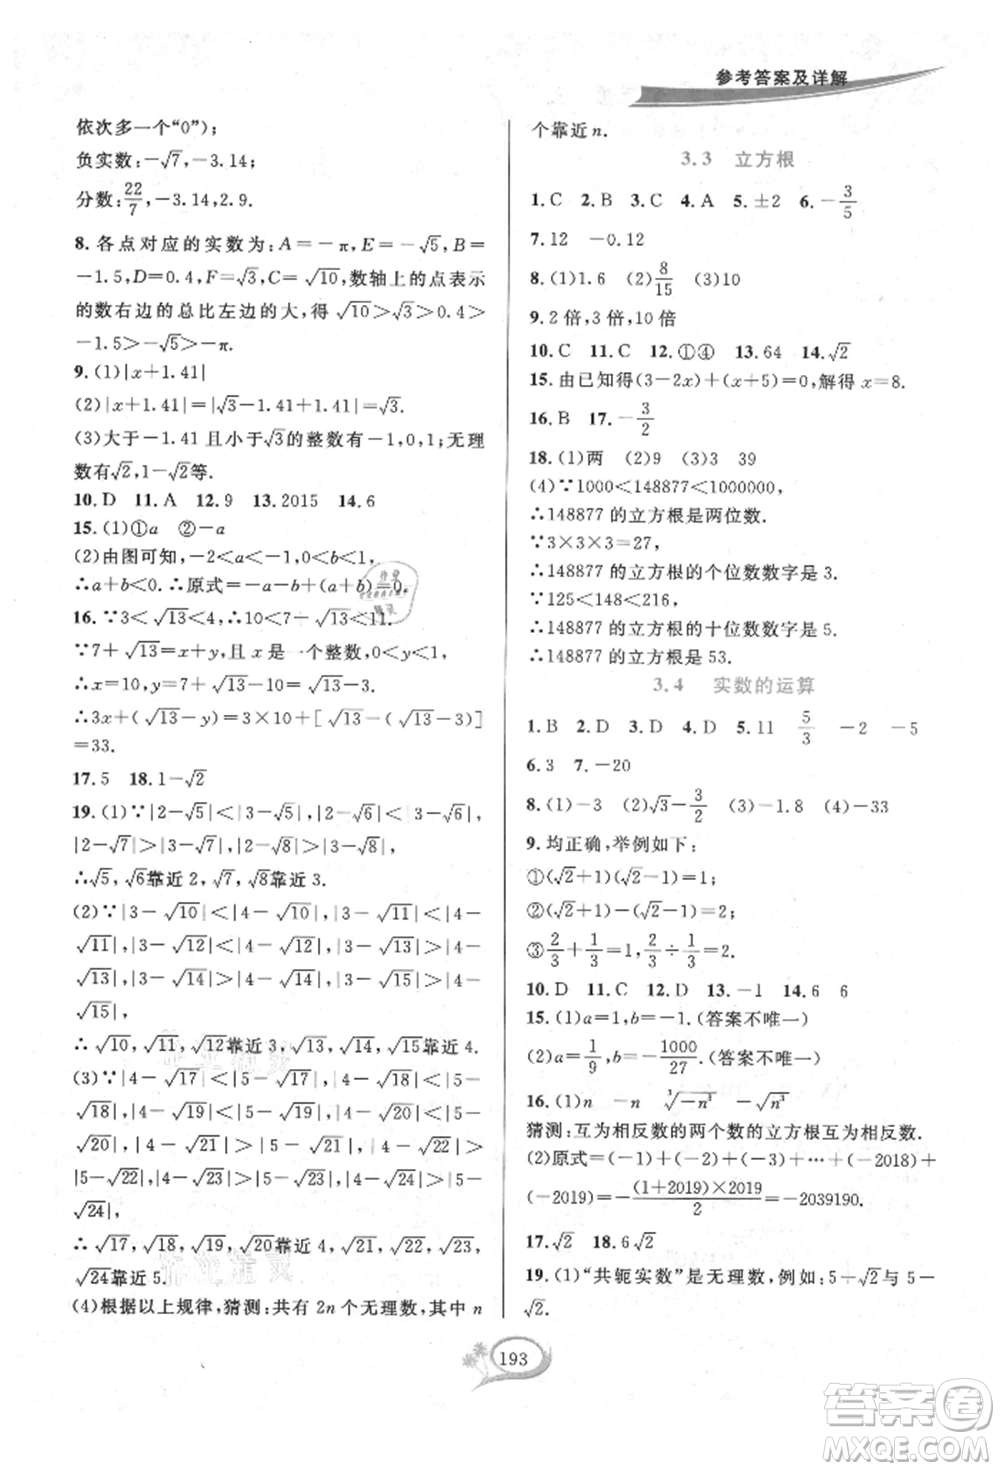 参考答案及详解
依次多一个“0”);
负实数:−√7,−3.14;
分数:22/7,−3.14,2.9.
8. 各点对应的实数为:A=−π,E=−√5,B=
−1.5,D=0.4,F=√3,C=√10,数轴上的点表示
的数右边的总比左边的大,得√10>√3>0.4>
−1.5>−√5>−π.
9. (1)|x+1.41|
(2)|x+1.41|=|√3−1.41+1.41|=√3.
(3)大于−1.41且小于√3的整数有−1,0,1;无理
数有√2,1−√2等.
10. D 11. A 12. 9 13. 2015 14. 6
15. (1)①a ②−a
(2)由图可知,−2<a<−1,0<b<1,
∴a+b<0.∴原式=−a−b+(a+b)=0.
16. ∵3<√13<4,∴10<7+√13<11.
∵7+√13=x+y,且x是一个整数,0<y<1,
∴x=10,y=7+√13−10=√13−3.
∴3x+(√13−y)=3×10+[√13−(√13−3)]
=33.
17. 5 18. 1−√2
19. (1)∵|2−√5|<|3−√5|,|2−√6|<|3−√6|,
|2−√7|>|3−√7|,|2−√8|>|3−√8|,
∴√5,√6靠近2,√7,√8靠近3.
(2)∵|3−√10|<|4−√10|,|3−√11|<|4−
√11|,|3−√12|<|4−√12|,|3−√13|>|4−
√13|,|3−√14|>|4−√14|,|3−√15|>|4−
√15|,
∴√10,√11,√12靠近3,√13,√14,√15靠近4.
(3)∵|4−√17|<|5−√17|,|4−√18|<|5−
√18|,|4−√19|<|5−√19|,|4−√20|<|5−
√20|,|4−√21|>|5−√21|,|4−√22|>
|5−√22|,|4−√23|>|5−√23|,|4−√24|>|5−
√24|,
∴√17,√18,√19,√20靠近4,√21,√22,√23,
√24靠近5.
(4)根据以上规律,猜测:共有2n个无理数,其中n
个靠近n.
3.3 立方根
1. C 2. B 3. C 4. A 5. ±2 6. −3/5
7. 12 −0.12
8. (1)1.6 (2)8/15 (3)10
9. 2倍,3倍,10倍
10. C 11. C 12. ①④ 13. 64 14. √2
15. 由已知得(3−2x)+(x+5)=0,解得x=8.
16. B 17. −3/2
18. (1)两 (2)9 (3)3 39
(4)∵1000<148877<1000000,
∴148877的立方根是两位数.
∵3×3×3=27,
∴148877的立方根的个位数数字是3.
∵125<148<216,
∴148877的立方根的十位数数字是5.
∴148877的立方根是53.
3.4 实数的运算
1. B 2. D 3. D 4. D 5. 11 5/3 −2 −5
6. 3 7. −20
8. (1)−3 (2)√3−3/2 (3)−1.8 (4)−33
9. 均正确,举例如下:
①(√2+1)−(√2)=1;
②(√2+1)×(√2−1)=1;
③2/3+1/3=1,3/4÷3/4=1.
10. D 11. C 12. D 13. −1 14. 6 6
15. (1)a=1,b=−1.(答案不唯一)
(2)a=1/9,b=−1000/27.(答案不唯一)
16. (1)n −n ∛−n³ −∛n³
猜测:互为相反数的两个数的立方根互为相反数.
(2)原式=(−1)+(−2)+…+(−2018)+
(−2019)=−(1+2019)×2019/2=−2039190.
17. √2 18. 6√2
19. (1)“共轭实数”是无理数,例如:5+√2与5−
√2.
193
答案圈
MXQE.COM